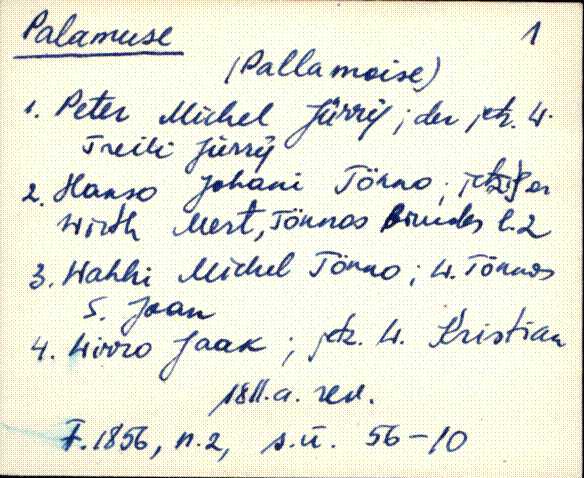 Palamuse 1
(Pallamoise)
1. Peter Michel Jürry; der jetz. W.
Treili Jürry
2. Hanso Johani Tönno; jetziger
Wirth Mert, Tönnos Bruders S. 2
3. Wahhi Michel Tönno; W. Tönnos
S. Joan
4. Wirro Jaak; jetz. W. Kristian
1811.a. rev.
F. 1856, n. 2, s.ü. 56-10